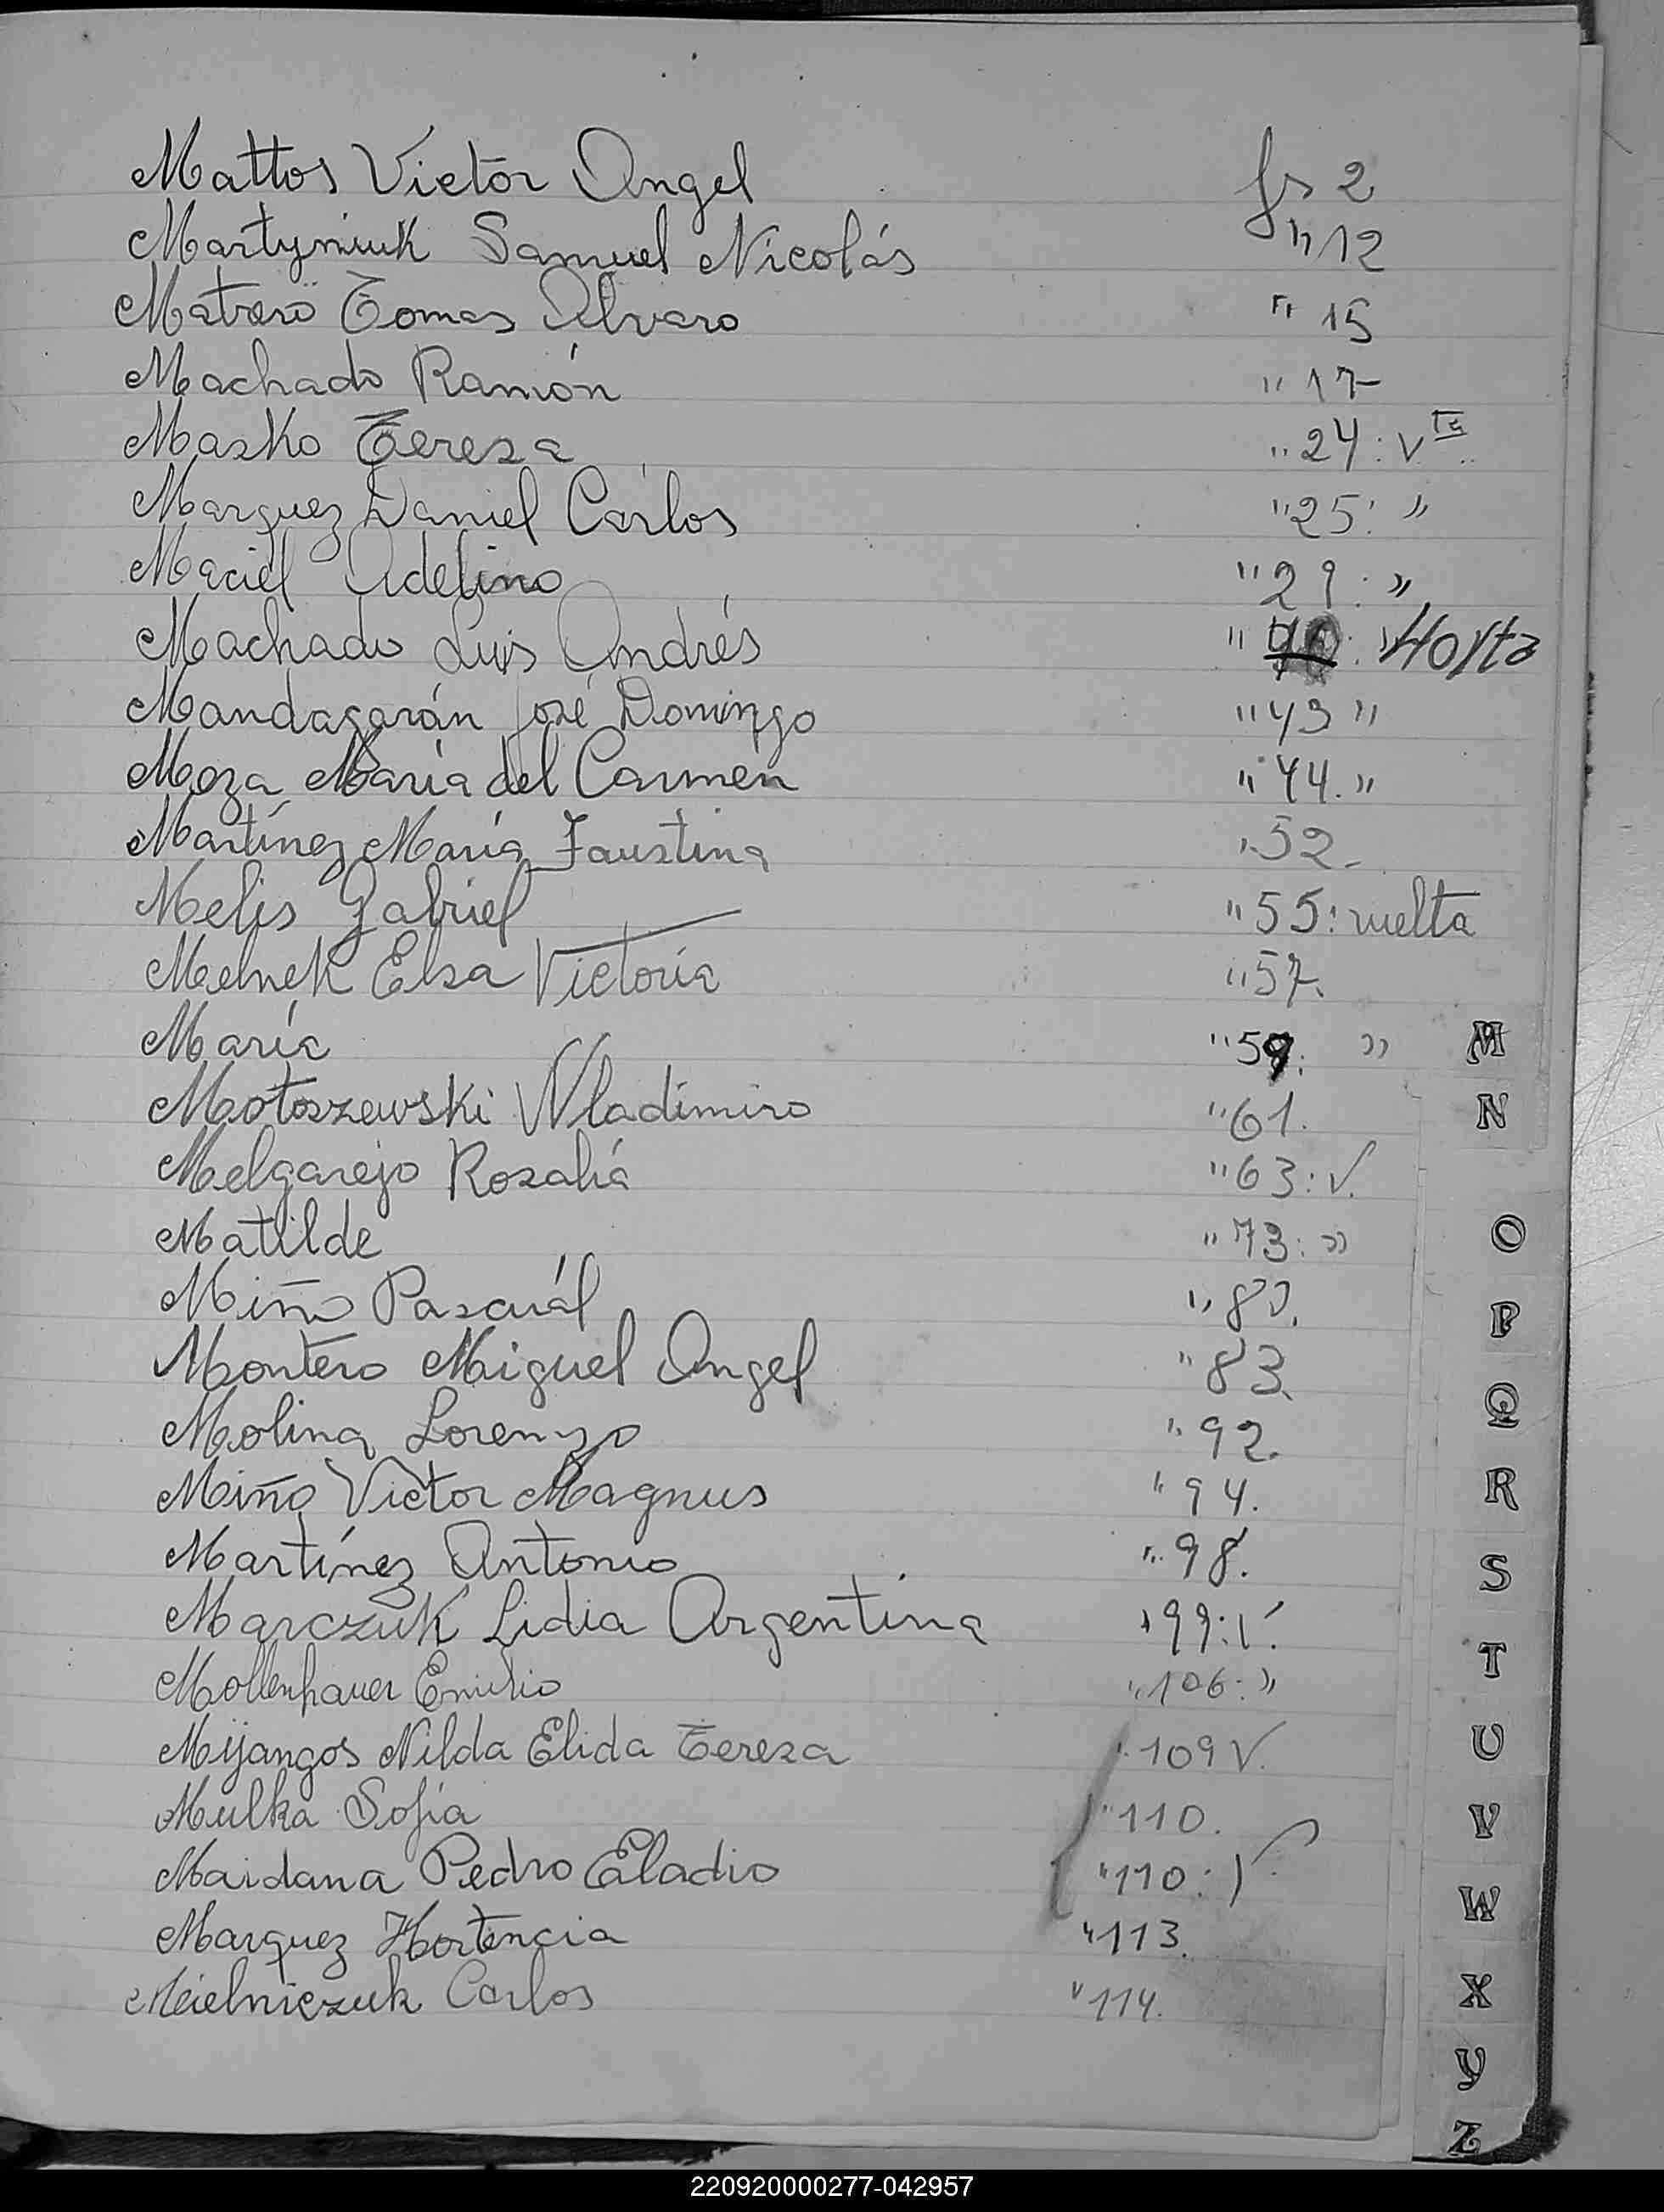 Mattos Victor Angel fs 2
Martyniuk Samuel Nicolás " 12
Tomas Alvaro " 15
Machado Ramón " 17
Masko Teresa " 24: v
Marquez Daniel Carlos " 25: "
Maciel Adelino " 29: "
Machado Luis Andrés "
Mandagarán José Domingo " 43 "
Moza María del Carmen " 44. "
Martínez María Faustina " 52.
Melis Gabriel " 55: vuelta
Melnek Elsa Victoria " 57.
María " 59: "
M
Motoszewski Wladimiro " 61.
N
Melgarejo Rosalía " 63: v.
Matilde " 73: "
O
Miño Pascuál " 80.
P
Montero Miguel Angel " 83.
Molina Lorenzo " 92.
Q
Miño Victor Magnus " 94.
R
Martínez Antonio " 98.
S
Marczuk Lidia Argentina " 99: v.
T
Mollenhauer Emilio " 106: "
Mijangos Nilda Elida Teresa " 109 v.
U
Mulka Sofía " 110.
V
Maidana Pedro Eladio " 110: v
W
Marquez Hortencia " 113.
X
Mielniczuk Carlos " 114.
Y
Z
220920000277-042957